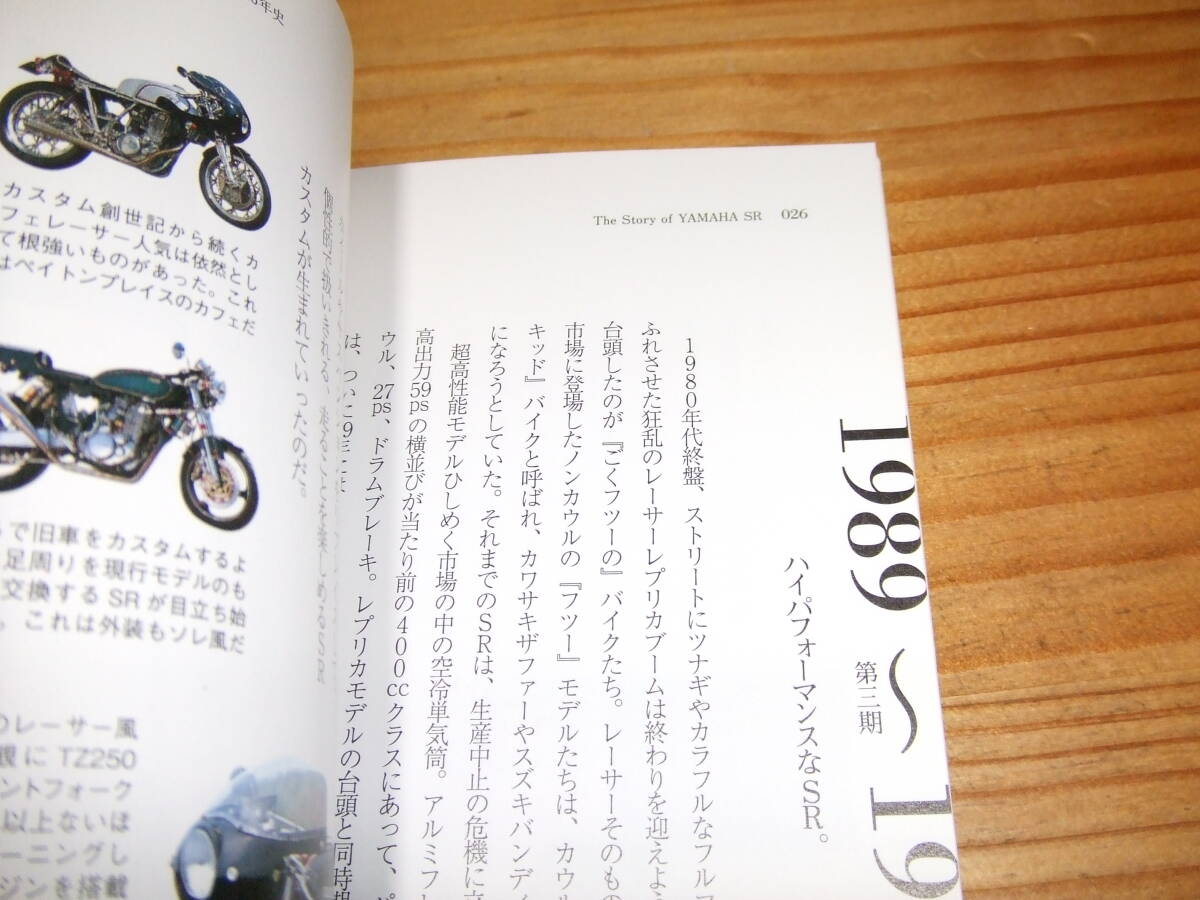 年史
カスタム創世記から続くカ
フェレーサー人気は依然とし
て根強いものがあった。これ
はペイトンプレイスのカフェだ
で旧車をカスタムするよ
足周りを現行モデルのも
交換するSRが目立ち始
。これは外装もソレ風だ
のレーサー風
観にTZ250
ントフォーク
以上ないほ
ーニングし
ジンを搭載
個性的で扱いきれる、走ることを楽しめるSR
カスタムが生まれていったのだ。
The Story of YAMAHA SR 026
1989〜19
第三期
ハイパフォーマンスなSR。
1980年代終盤、ストリートにツナギやカラフルなフルフ
ふれさせた狂乱のレーサーレプリカブームは終わりを迎えよう
台頭したのが『ごくフツーの』バイクたち。レーサーそのもの
市場に登場したノンカウルの『フツー』モデルたちは、カウル
キッド』バイクと呼ばれ、カワサキザファーやスズキバンディ
になろうとしていた。それまでのSRは、生産中止の危機に立
超高性能モデルひしめく市場の中の空冷単気筒。アルミフレ
高出力59psの横並びが当たり前の400ccクラスにあって、パ
ウル、27ps、ドラムブレーキ。レプリカモデルの台頭と同時期
は、ついに